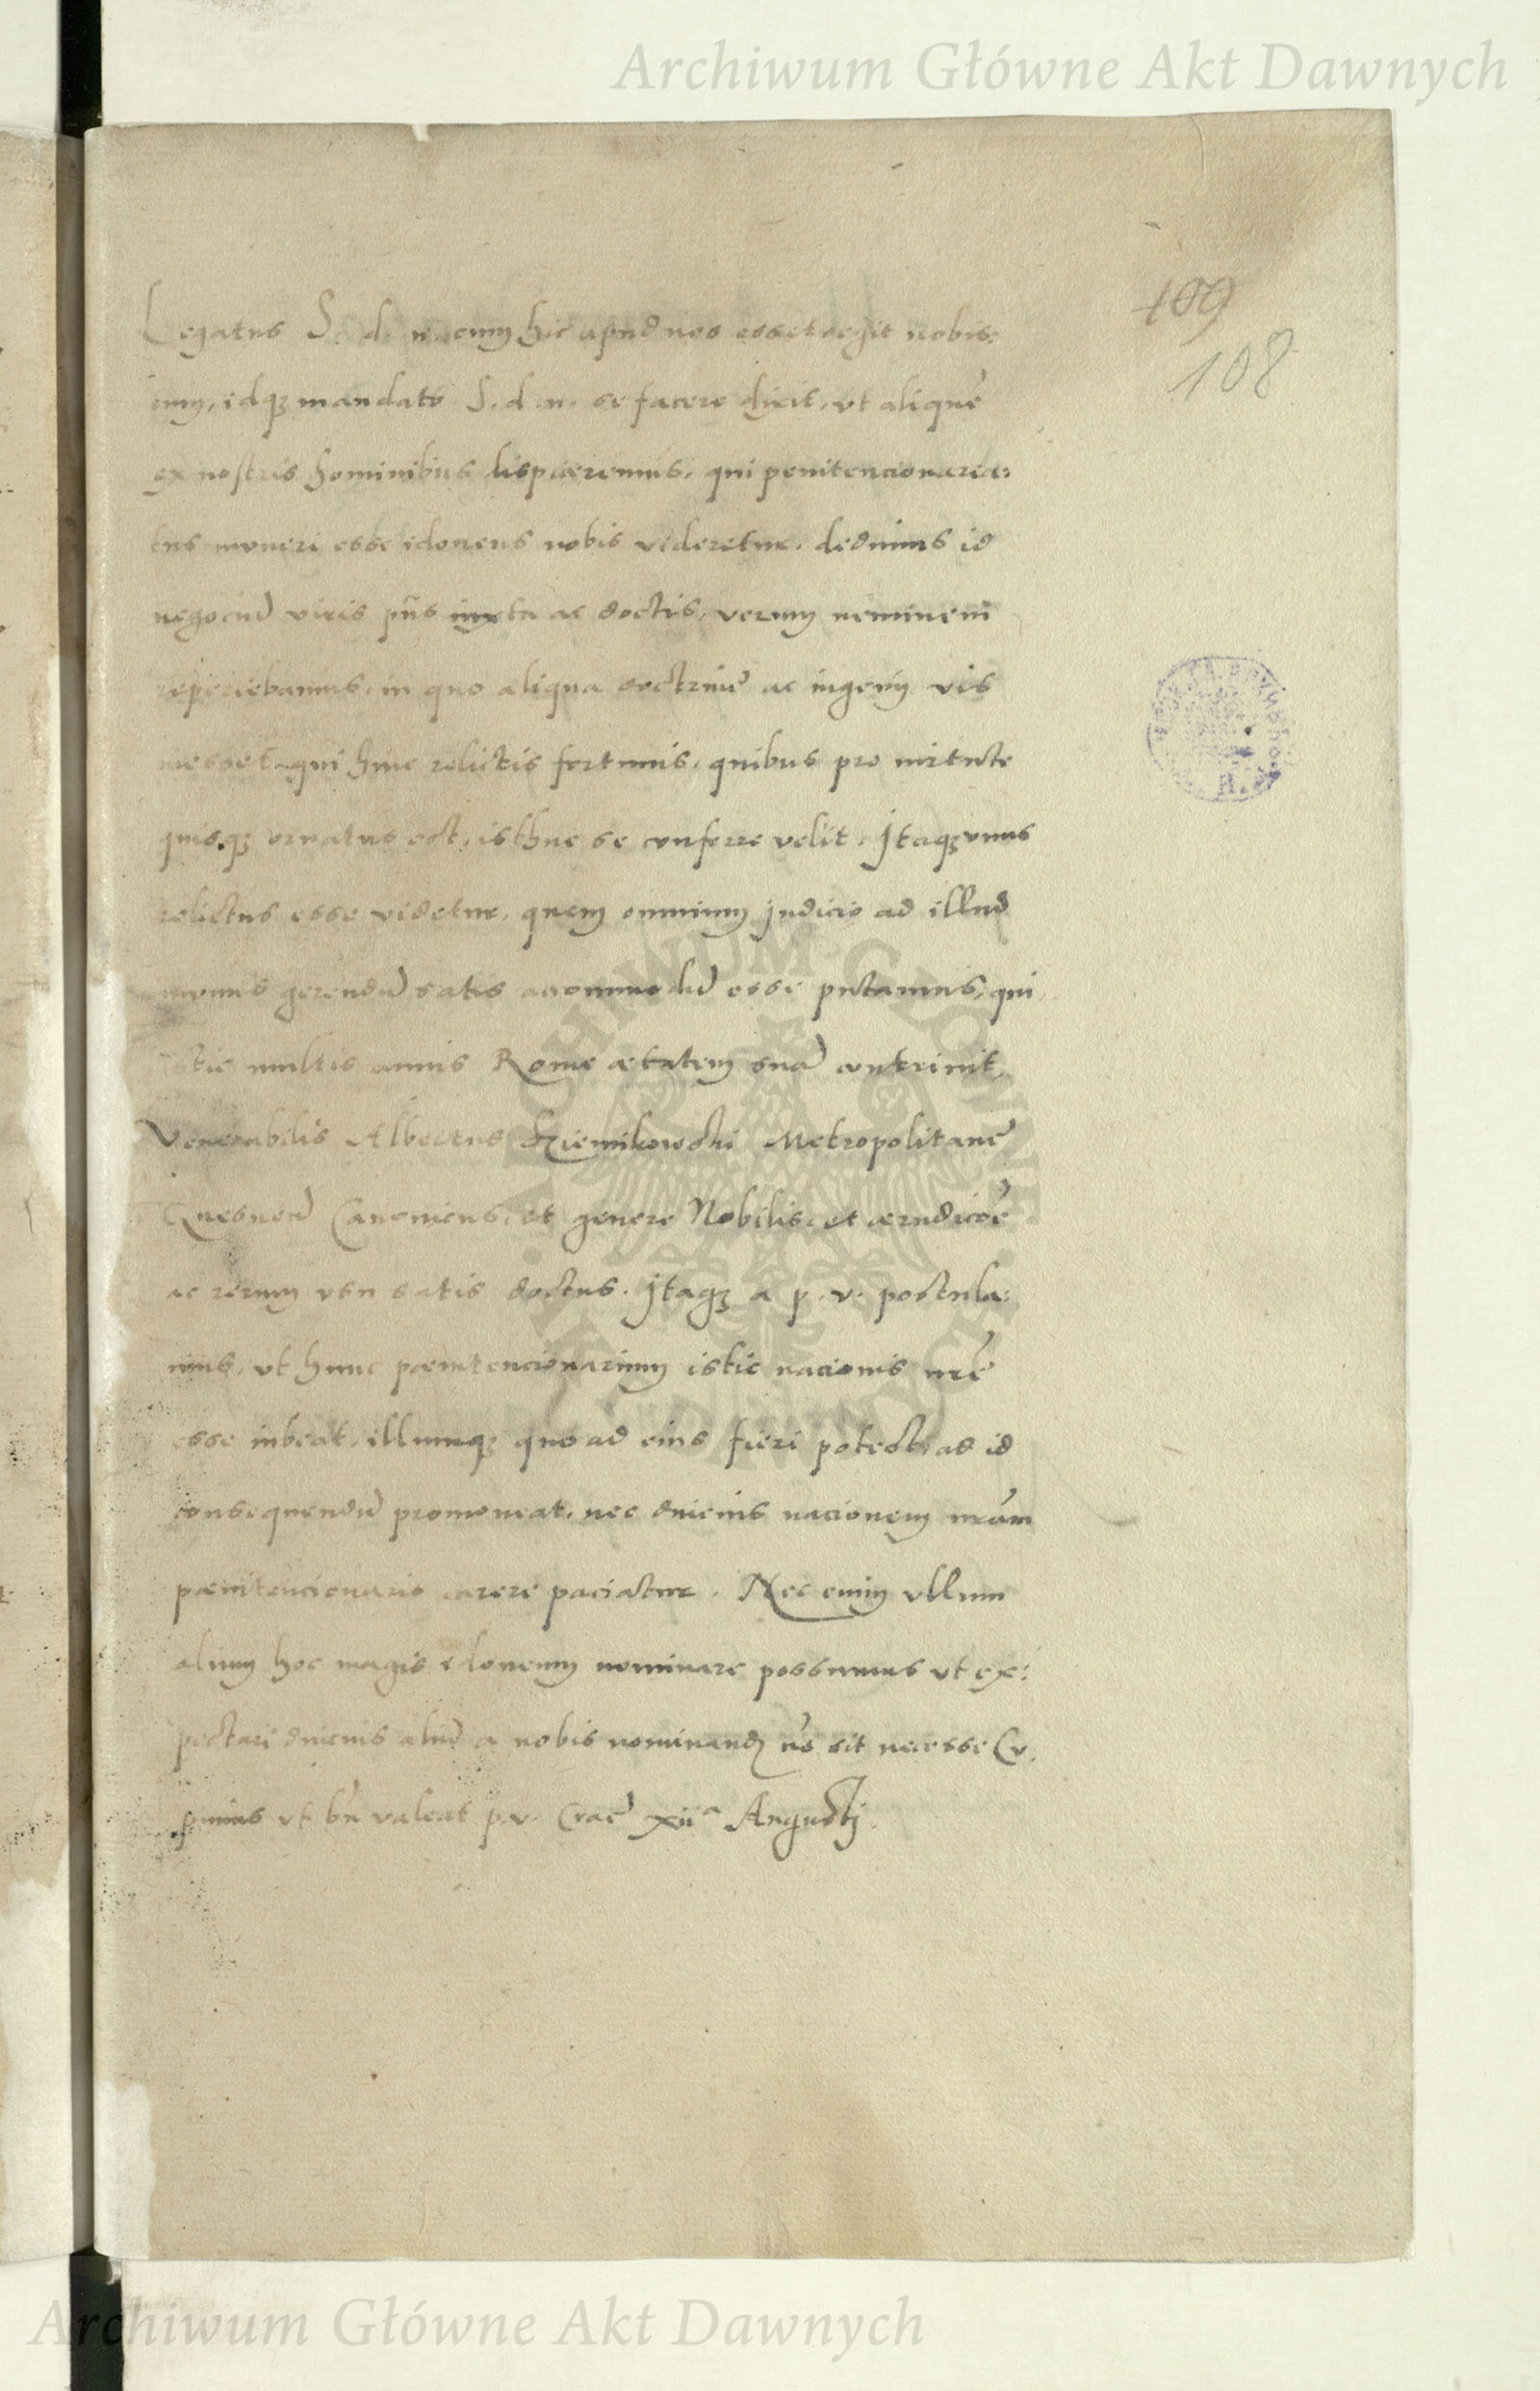 Archiwum Główne Akt Dawnych
109
108
Legatus S. d. n. cum hic apud nos esset aegit nobis:
cum, idq3 mandato S. d. n. se facere dixit, vt aliquẽ
ex nostris hominibus dispiceremus, qui penitencionaria:
tus muneri esse idoneus nobis videretur. dedimus id
negociũ viris piis iuxta ac doctis, verum neminem
reperiebamus, in quo aliqua doctrinẽ ac ingenij vis
inesset qui hinc relictis fortunis, quibus pro uirtute
quisq3 ornatus est, isthuc se conferre velit. Itaq3 vnus
relictus esse videtur, quem omnium judicio ad illud
munus gerendũ satis accommodũ esse putamus, qui
istic multis annis Rome aetatem suã contriuit
Venerabilis Albertus Metropolitanẽ
Gnesneñ Canonicus, et genere Nobilis, et aerudicõe
ac rerum vsu satis doctus. Itaq3 a p. v. postula:
mus, vt hunc paenitencionarium istic nacionis nrẽ
esse iubeat, illumq3 quo ad eius fieri potest, ad id
consequendũ promoueat, nec diucius nacionem nrãm
paenitencionario carere paciatur. Nec enim vllum
alium hoc magis idoneum nominare possumus vt ex:
pectari diucius aliũ a nobis nominandũ nõ sit necesse Cu
pimus vt bñ valeat p. v. Crac̃ xii a Augustj.
ARCHIWUM GŁÓWNE AKT DAWNYCH
Archiwum Główne Akt Dawnych